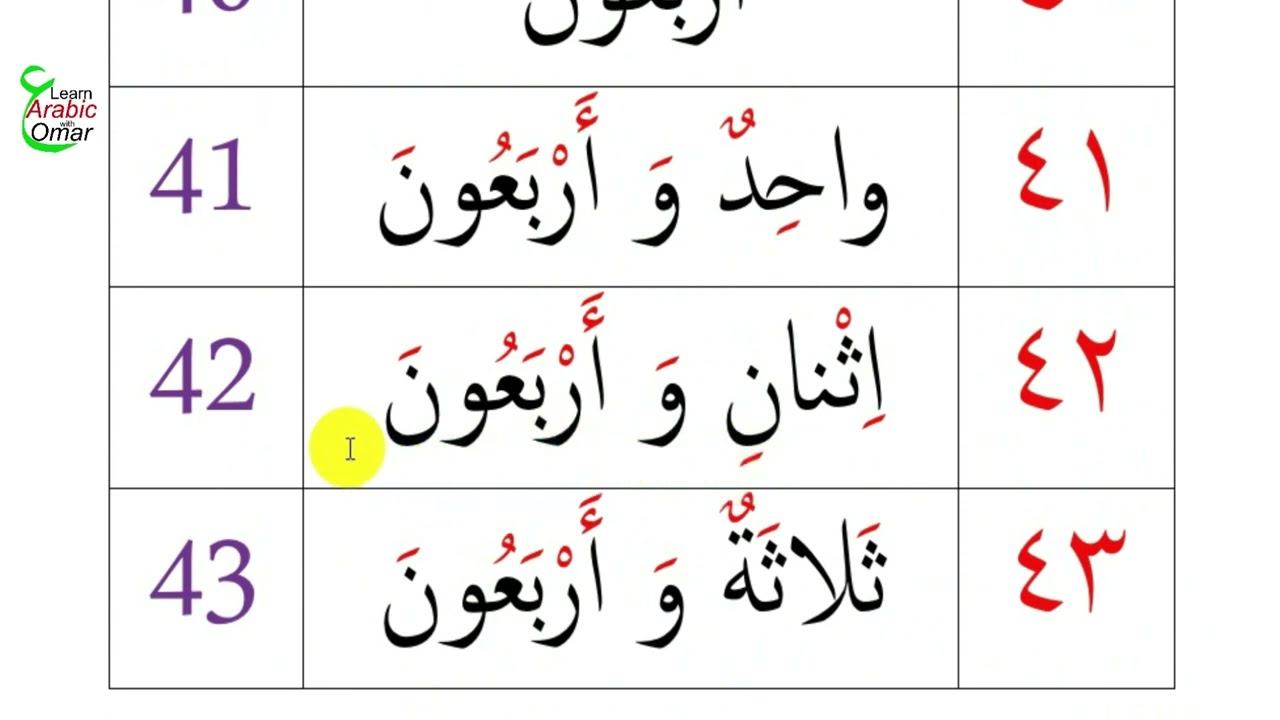 Learn
Arabic
with
Omar
40 أربعون
41 واحِدٌ وَ أَرْبَعُونَ ٤١
42 اِثْنانِ وَ أَرْبَعُونَ ٤٢
43 ثَلاثَةٌ وَ أَرْبَعُونَ ٤٣